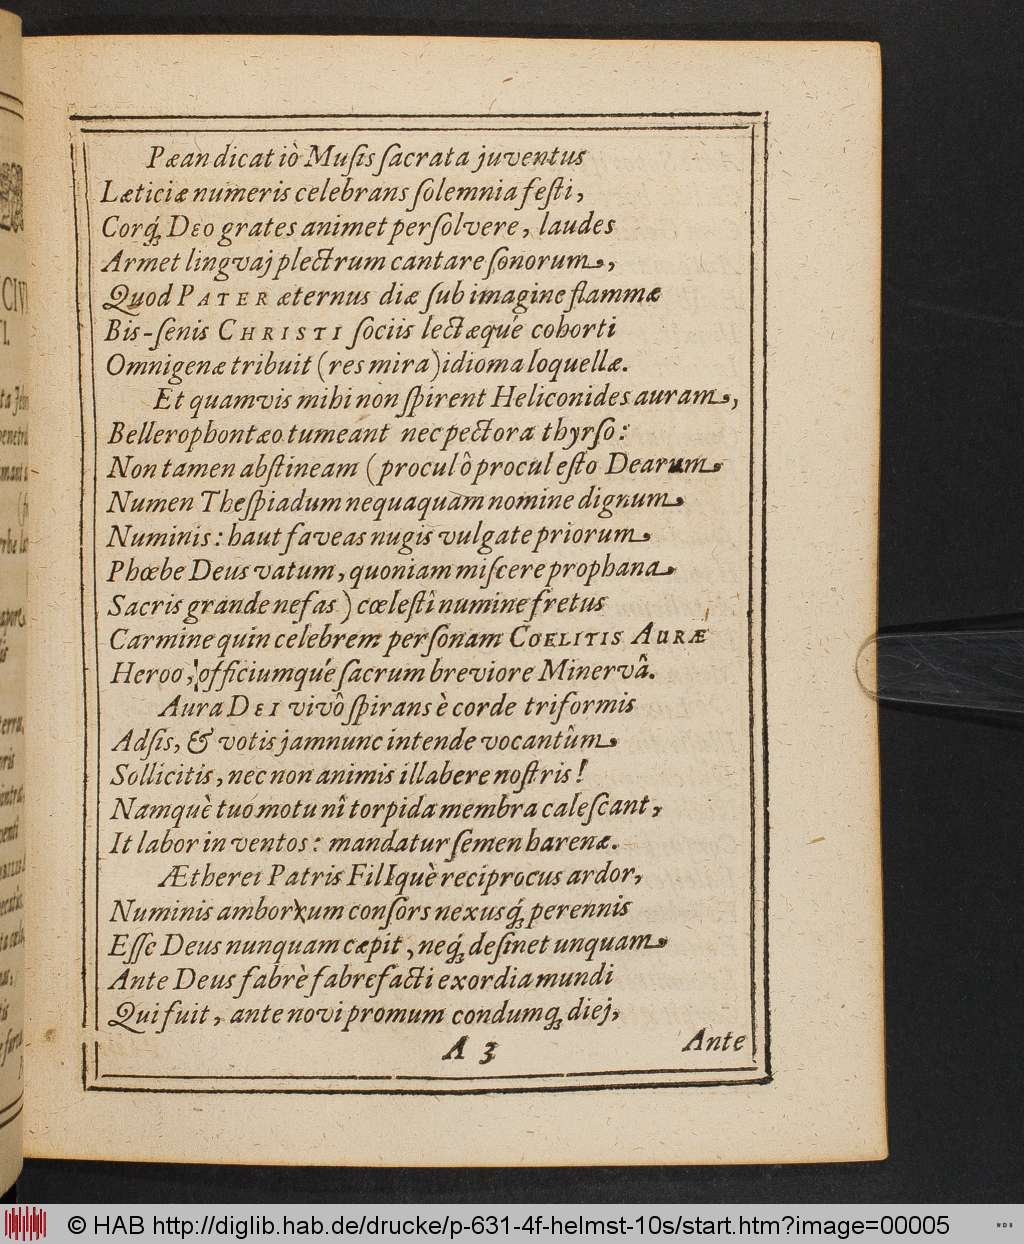 Pæan dicat iò Musis sacrata juventus
Læticiæ numeris celebrans solemnia festi,
Corq́; Deo grates animet persolvere, laudes
Armet lingvaj plectrum cantare sonorum,
Quod PATER æternus diæ sub imagine flammæ
Bis-senis CHRISTI sociis lectæqué cohorti
Omnigenæ tribuit (res mira) idioma loquellæ.
Et quamvis mihi non spirent Heliconides auram,
Bellerophontæo tumeant nec pectora thyrso:
Non tamen abstineam (procul ô procul esto Dearum
Numen Thespiadum nequaquam nomine dignum
Numinis: haut faveas nugis vulgate priorum
Phœbe Deus vatum, quoniam miscere prophana
Sacris grande nefas) cœlestî numine fretus
Carmine quin celebrem personam COELITIS AURÆ
Heroo, officiumqué sacrum breviore Minervâ.
Aura DEI vivô spirans è corde triformis
Adsis, & votis jamnunc intende vocantûm
Sollicitis, nec non animis illabere nostris!
Namquè tuo motu nî torpida membra calescant,
It labor in ventos: mandatur semen harenæ.
Ætherei Patris FilIquè reciprocus ardor,
Numinis amborxum consors nexusq́; perennis
Esse Deus nunquam cæpit, neq́; desinet unquam
Ante Deus fabrè fabrefacti exordia mundi
Qui fuit, ante novi promum condumq́; diej,
A 3
Ante
© HAB http://diglib.hab.de/drucke/p-631-4f-helmst-10s/start.htm?image=00005